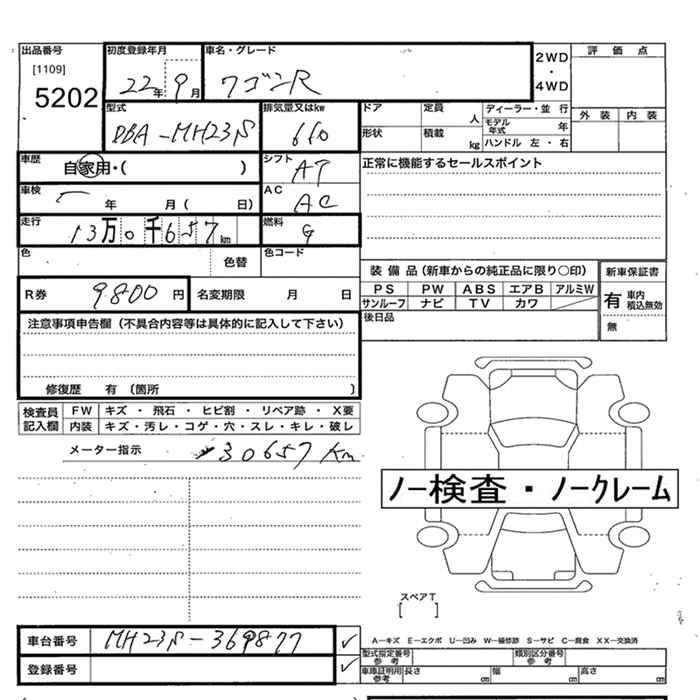 出品番号 初度登録年月 車名・グレード 2WD 評価点
[1109] 5202 22年 9月 ワゴンR ・ 4WD
型式 排気量又はkw ドア 定員 人 ディーラー・並 行 外 装 内 装
DBA-MH23S 660 形状 積載 kg モデル年式 年
ハンドル 左・右
車歴 自家用・( ) シフト AT 正常に機能するセールスポイント
車検 年 月( 日) AC AC
走行 13万0千657km 燃料 G
色 色替 色コード
装備品(新車からの純正品に限り○印) 新車保証書
R券 9800円 名変期限 月 日 PS PW ABS エアB アルミW 有 車内積込無効
サンルーフ ナビ TV カワ
注意事項申告欄(不具合内容等は具体的に記入して下さい) 後日品 無
修復歴 有 (箇所 )
検査員記入欄 FW キズ・飛石・ヒビ割・リペア跡・X要
内装 キズ・汚レ・コゲ・穴・スレ・キレ・破レ
メーター指示 130657 Km
ノー検査・ノークレーム
スペアT
[ ]
車台番号 MH23S-369877 ✓ A-キズ E-エクボ U-凹み W-補修跡 S-サビ C-腐食 XX-交換済
型式指定番号 参考 類別区分番号 参考
登録番号 ✓ 車庫証明用 参考 長さ cm 幅 cm 高さ cm